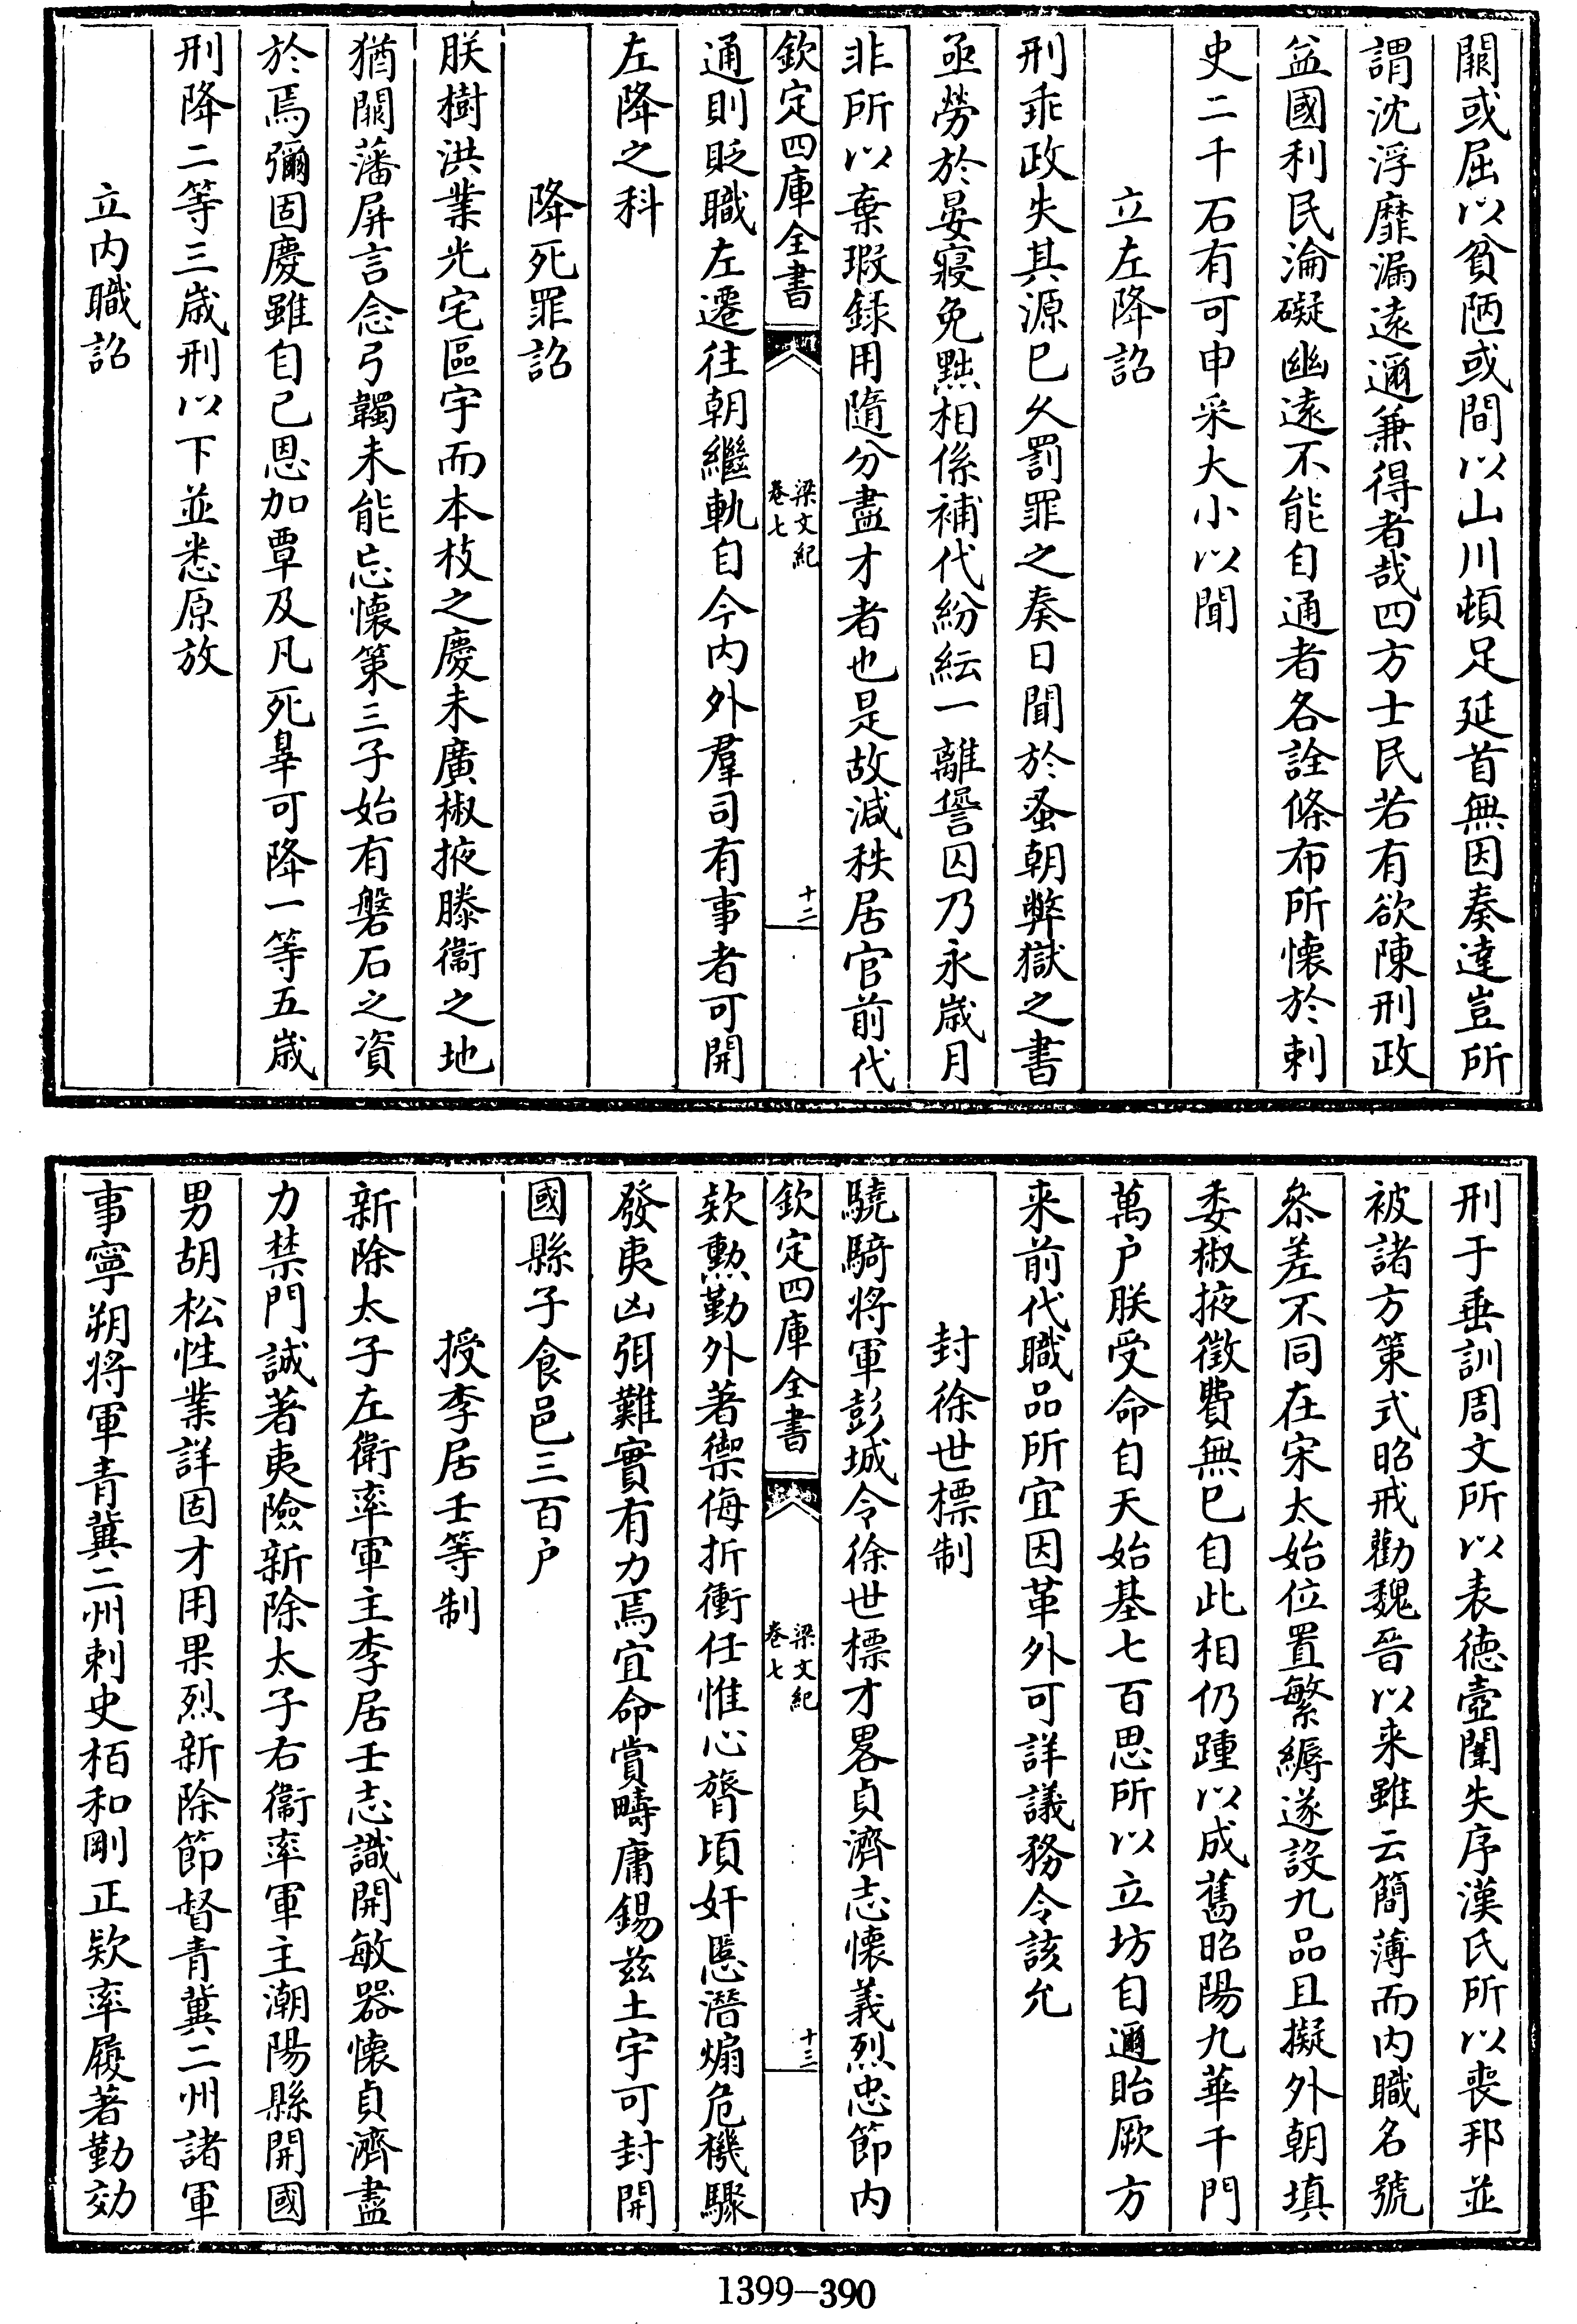 闕或屈以貧陋或間以山川頓足延首無因奏達豈所
謂沈浮靡漏遠邇兼得者哉四方士民若有欲陳刑政
益國利民淪礙幽遠不能自通者各詮條布所懷於刺
史二千石有可申采大小以聞
立左降詔
刑乖政失其源已久罰罪之奏日聞於蚤朝弊獄之書
亟勞於晏寢免黜相係補代紛紜一離諐囚乃永歲月
非所以棄瑕録用隨分盡才者也是故減秩居官前代
欽定四庫全書
梁文紀
卷七
十二
通則貶職左遷往朝繼軌自今内外羣司有事者可開
左降之科
降死罪詔
朕樹洪業光宅區宇而本枝之慶未廣椒掖滕衞之地
猶闕藩屏言念弓韣未能忘懷第三子始有磐石之資
於焉彌固慶雖自己恩加覃及凡死辠可降一等五歲
刑降二等三歲刑以下並悉原放
立内職詔
刑于垂訓周文所以表德壼闈失序漢氏所以喪邦並
被諸方策式昭戒勸魏晉以来雖云簡薄而内職名號
叅差不同在宋太始位置繁縟遂設九品且擬外朝填
委椒掖徵費無已自此相仍踵以成舊昭陽九華千門
萬户朕受命自天始基七百思所以立坊自邇貽厥方
来前代職品所宜因革外可詳議務令該允
封徐世標制
驍騎將軍彭城令徐世標才畧貞濟志懷義烈忠節内
欽定四庫全書
梁文紀
卷七
十三
欵勲勤外著禦侮折衝任惟心膂頃奸慝潛煽危機驟
發夷凶弭難實有力焉宜命賞疇庸錫兹土宇可封開
國縣子食邑三百户
授李居壬等制
新除太子左衛率軍主李居壬志識開敏器懷貞濟盡
力禁門誠著夷險新除太子右衞率軍主潮陽縣開國
男胡松性業詳固才用果烈新除節督青冀二州諸軍
事寧朔將軍青冀二州刺史栢和剛正欵率履著勤効
1399-390